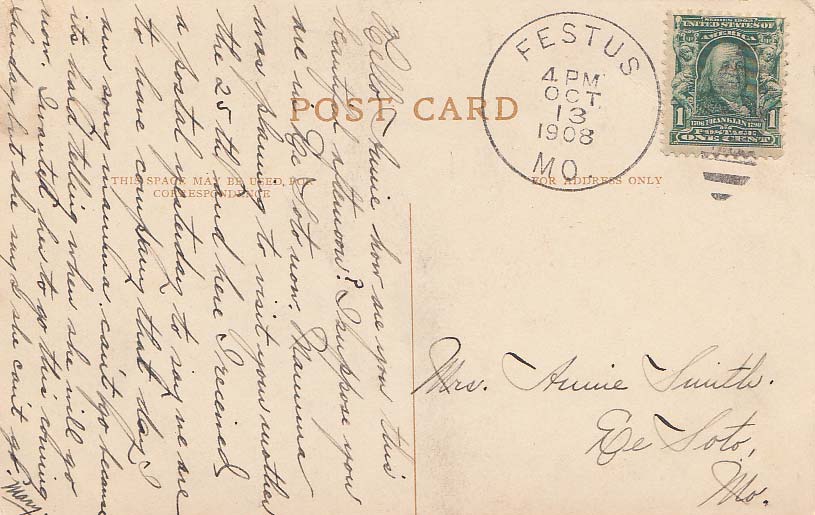 POST CARD
THIS SPACE MAY BE USED FOR
CORRESPONDENCE
FOR ADDRESS ONLY
FESTUS
4 PM
OCT
13
1908
MO.
SERIES 1902
UNITED STATES OF
AMERICA
1 1706 FRANKLIN 1790 1
POSTAGE
ONE CENT
Hello Annie how are you this
beautiful afternoon? I suppose you
are in De Soto now. Mamma
was planing to visit your mother
the 25th, and here I received
a postal yesterday to say we are
to have company that day. I
am sorry mamma can't go because
its hard telling when she will go
now. I wanted her to go this coming
Sunday but she says she can't go.
Mary.
Mrs. Annie Smith.
De Soto,
Mo.